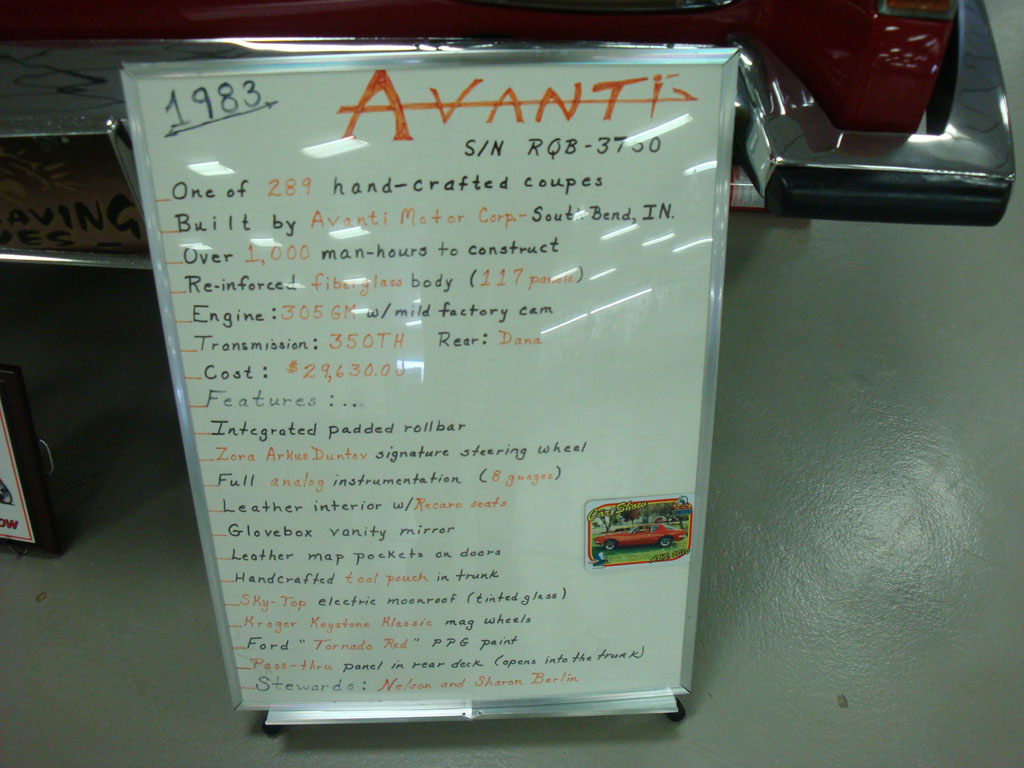 1983
AVANTI
S/N RQB-3750
One of 289 hand-crafted coupes
Built by Avanti Motor Corp.- South Bend, IN.
Over 1,000 man-hours to construct
Re-inforced fiberglass body (117 panels)
Engine: 305 GM w/ mild factory cam
Transmission: 350TH Rear: Dana
Cost: $29,630.00
Features:...
Integrated padded rollbar
Zora Arkus Duntov signature steering wheel
Full analog instrumentation (8 guages)
Leather interior w/ Recaro seats
Glovebox vanity mirror
Leather map pockets on doors
Handcrafted tool pouch in trunk
Sky-Top electric moonroof (tinted glass)
Krager Keystone Klassic mag wheels
Ford "Tornado Red" PPG paint
Pass-thru panel in rear deck (opens into the trunk)
Stewards: Nelson and Sharon Berlin
Car Show